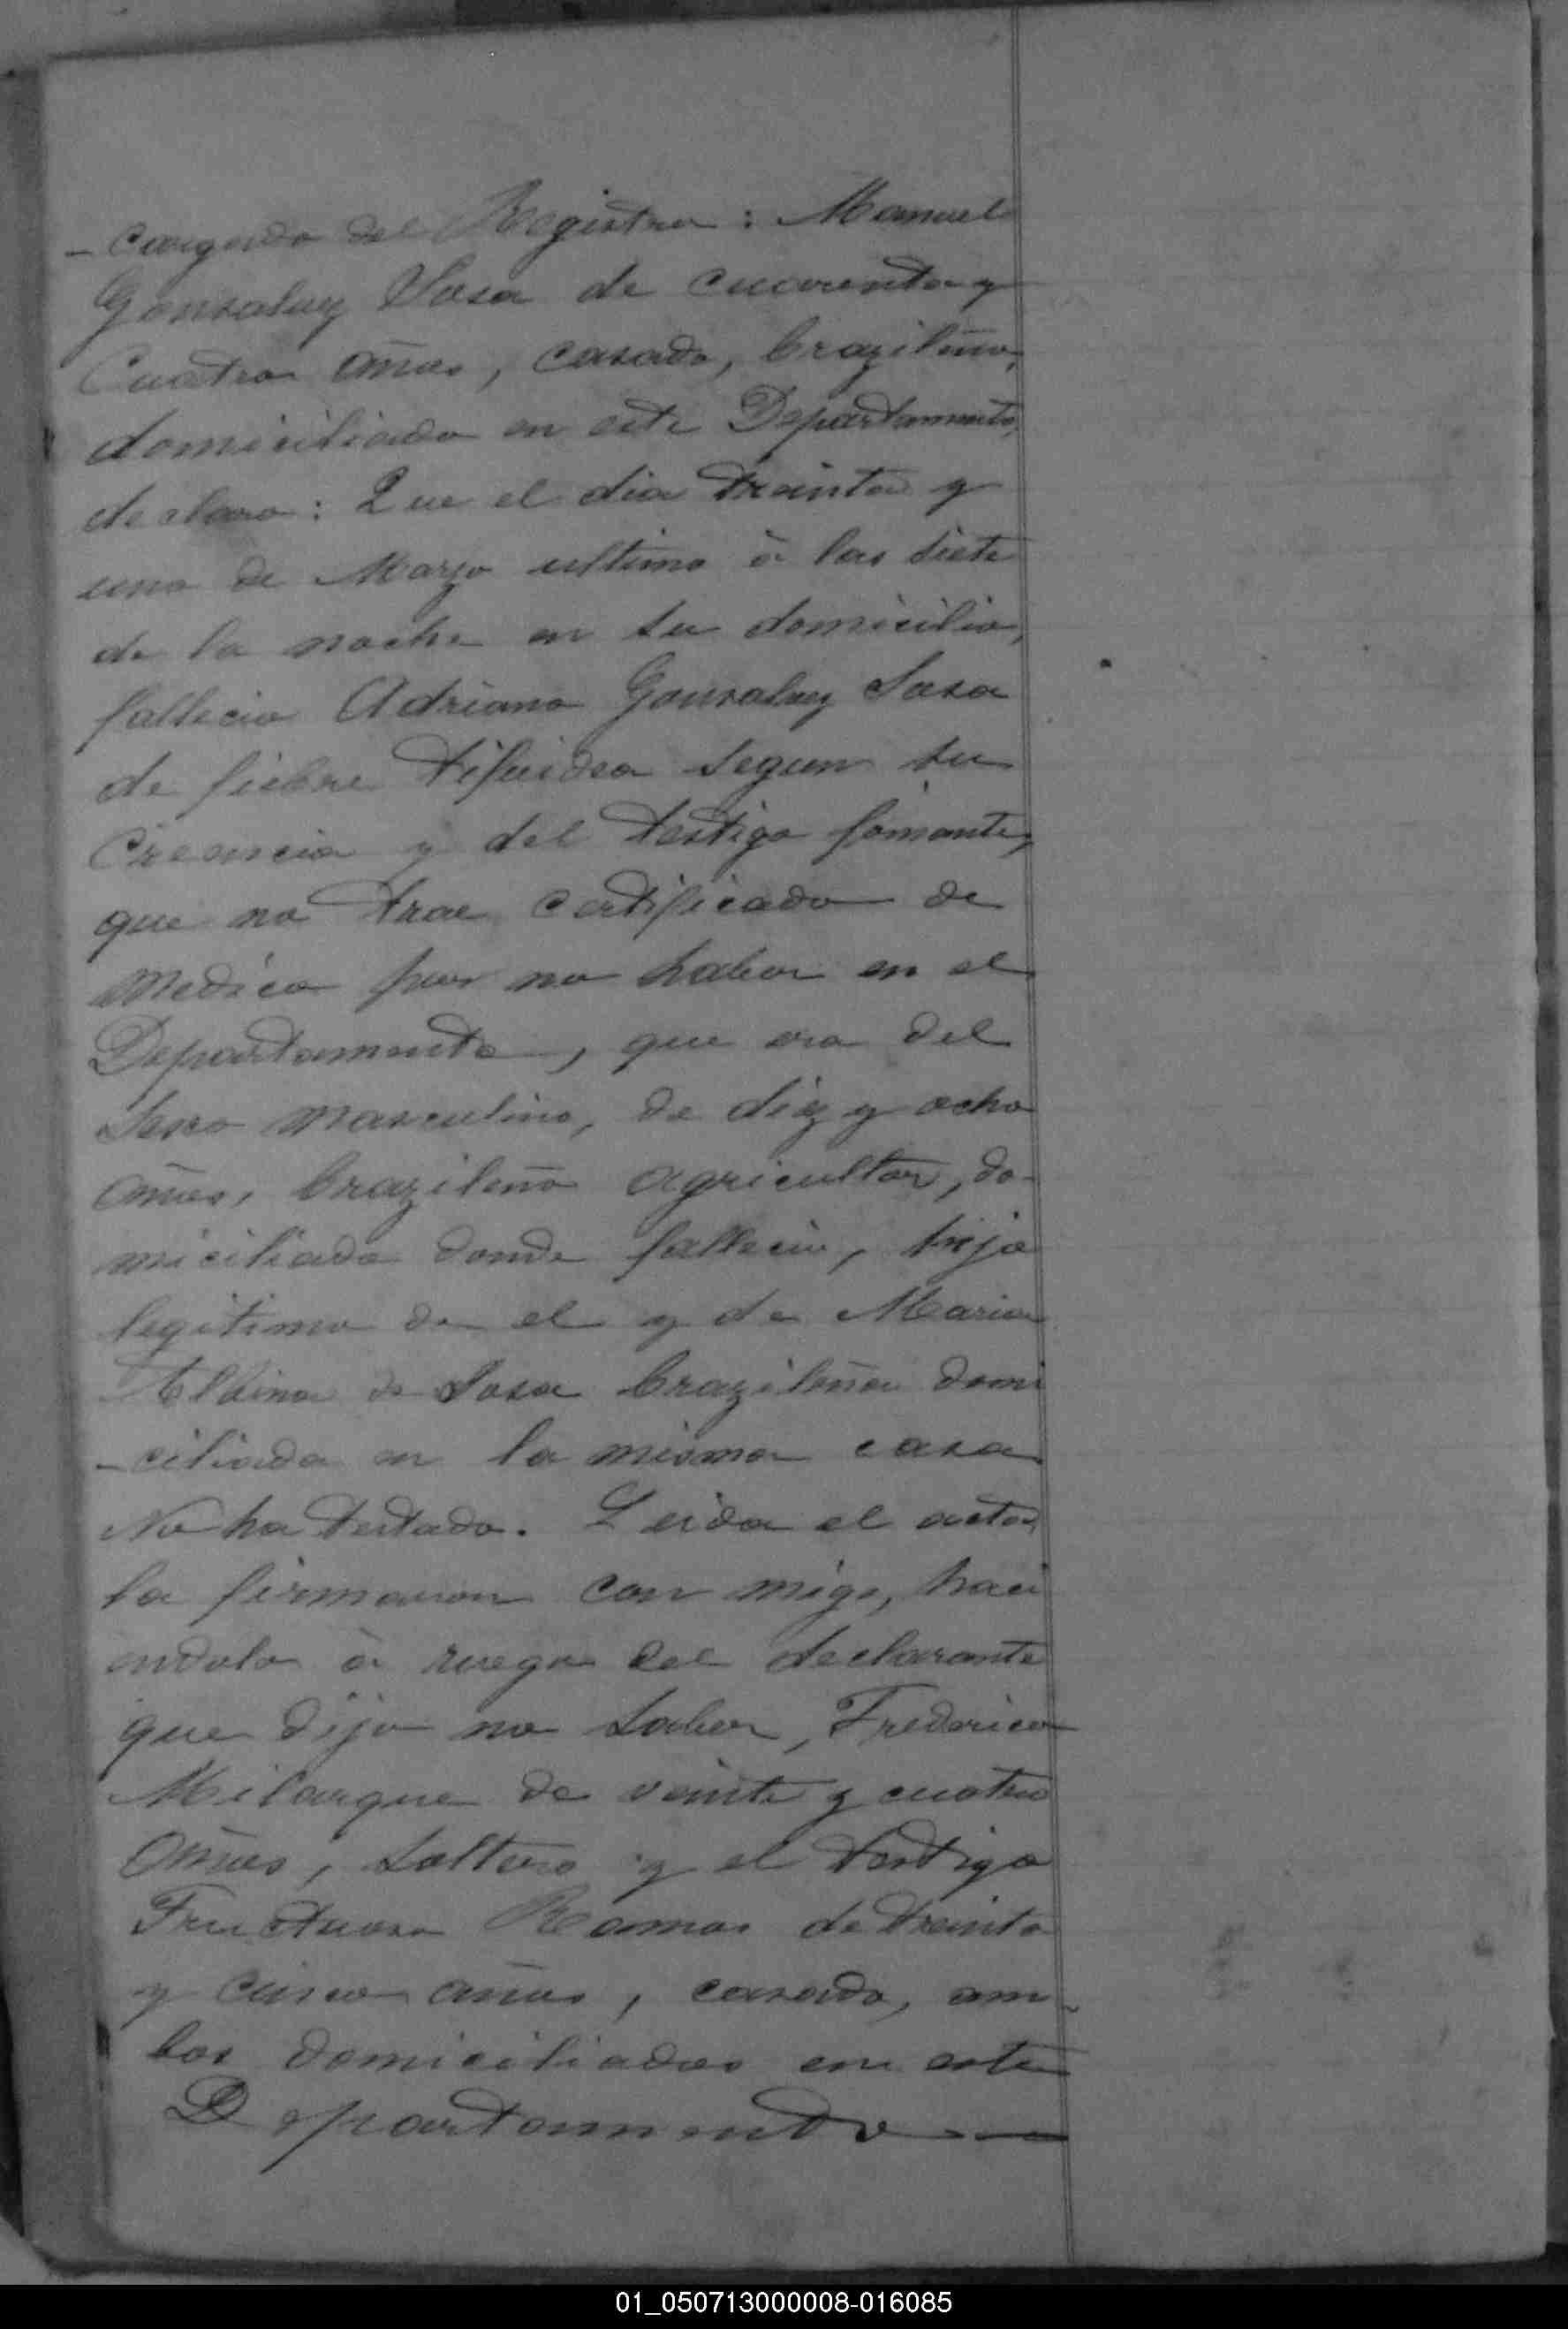 - cargado del Registro: Manuel
Gonsalvez Sosa de cuarenta y
Cuatro años, casado, brazileño,
domiciliado en este Departamento,
declaro: Que el dia treinta y
uno de Marzo ultimo à las siete
de la noche en su domicilio,
fallecio Adriano Gonsalvez Sosa
de fiebre tifuidea segun su
Creencia y del testigo
que no trae certificado de
medico por no haber en el
Departamento, que era del
Sexo masculino, de diez y ocho
años, brazileño agricultor, do-
miciliado donde fallecio, hijo
legitimo de el y de Maria
de Sosa brazileña domi
- ciliada en la misma casa
No ha testado. Leida el acta,
la firmaron con migo, haci
endolo à ruego del declarante
que dijo no saber, Frederico
de veinte y cuatro
años, soltero y el testigo
Fructuoso Ramos de treinta
y cinco años, casado, am-
bos domiciliados en este
Departamento —
01_050713000008-016085